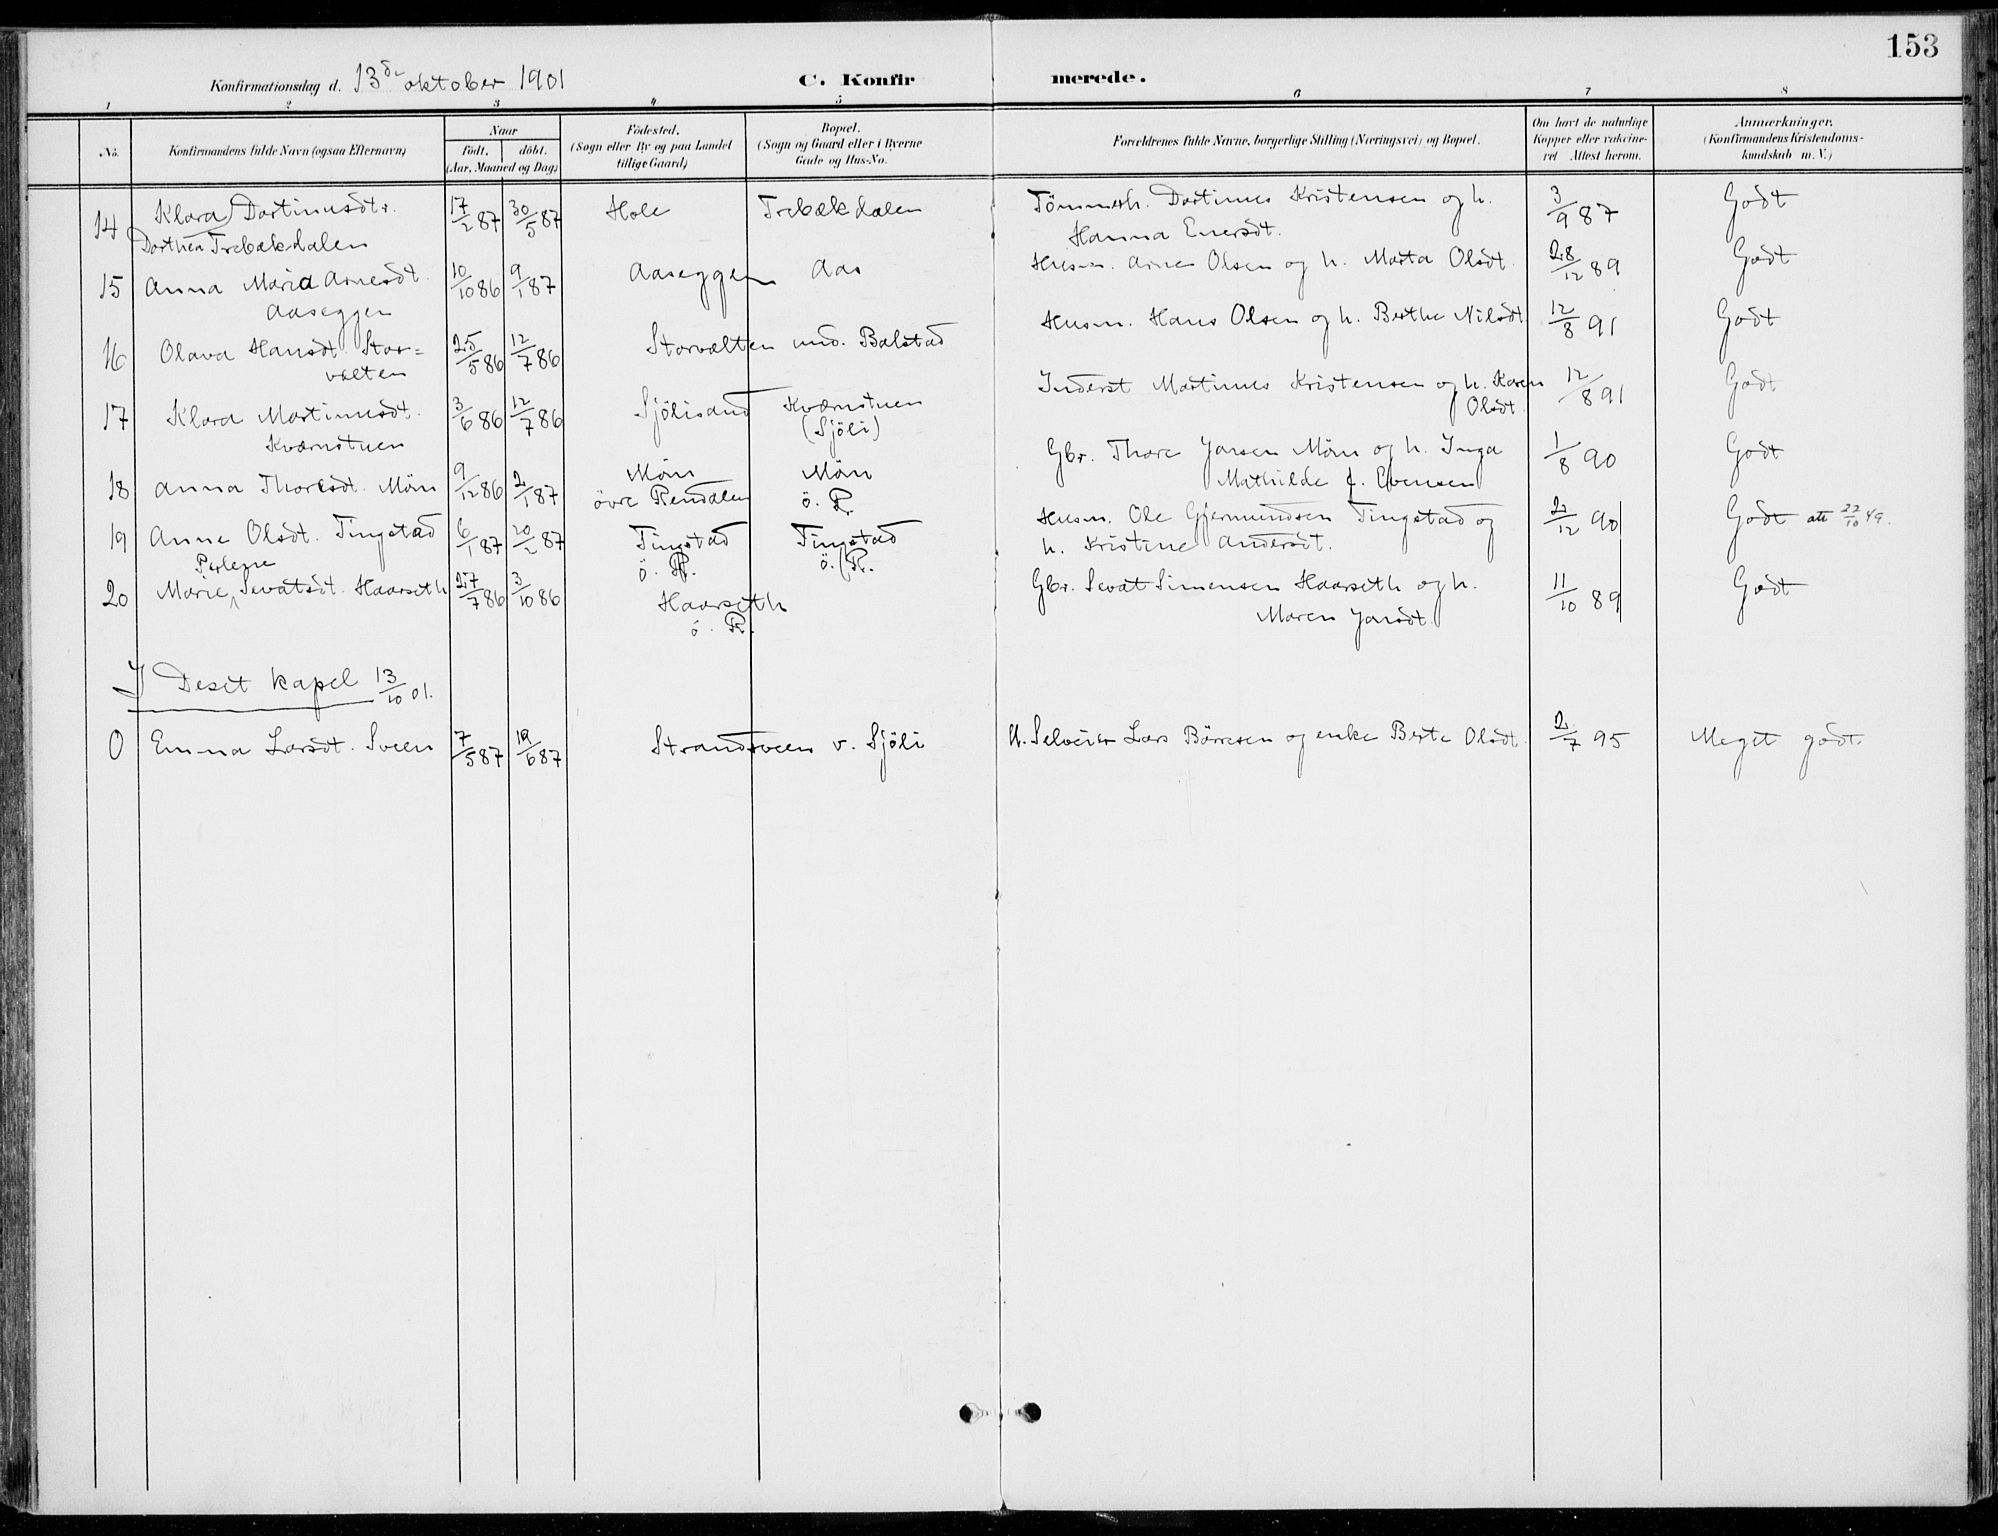 153
Konfirmationsdag d. 13de oktober 1901
C. Konfirmerede.
1 2 3 4 5 6 7 8
No.
Konfirmandens fulde Navn (ogsaa Efternavn)
Naar
født, døbt.
(Aar, Maaned og Dag)
Födested.
(Sogn eller By og paa Landet
tillige Gaard)
Bopæl.
(Sogn og Gaard eller i Byerne
Gade og Hus-No.
Forældrenes fulde Navne, borgerlige Stilling (Næringsvei) og Bopæl.
Om havt de naturlige
Kopper eller vaccine-
ret Attest herom.
Anmærkninger.
(Konfirmandens Kristendoms-
kundskab m. V.)
14 Klara Dortinusdtr. 17/2 87 30/5 87 Hole Trebækdalen Tömmerh. Dortinus Kristensen og h. 3/9 87 Godt
Dorthea Trebækdalen Hanna Enersdt.
15 Anna Maria Arnesdt. 10/10 86 9/1 87 Aaseggen Aas Husm. Arne Olsen og h. Marta Olsdt. 28/12 89 Godt
Aaseggen
16 Olava Hansdt. Stor= 25/5 86 12/7 86 Storvælten und. Balstad Husm. Hans Olsen og h. Berthe Nilsdt. 12/8 91 Godt
vælten
17 Klara Martinusdt. 3/6 86 12/7 86 Sjölisand Kværnstuen Inderst Martinus Kristensen og h. Karen 12/8 91 Godt
Kværnstuen (Sjöli) Olsdt.
18 Anna Thoresdt. Mörn 9/12 86 2/1 87 Mörn Mörn Gbr. Thore Jonsen Mörn og h. Inga 1/8 90 Godt
övre Rendalen ö. R. Mathilde f. Evensen
19 Anne Olsdt. Tingstad 6/1 87 20/2 87 Tingstad Tingstad Husm. Ole Gjermundsen Tingstad og 2/12 90 Godt att 22/10 49.
ö. R. ö. R. h. Kristine Andersdt.
Perlene
20 Marie Sevatsdt. Haarseth 27/7 86 3/10 86 Haarseth Gbr. Sevat Simensen Haarseth og h. 11/10 89 Godt
ö. R. Maren Jonsdt.
I Deset kapel 13/10 01.
0 Emma Larsdt. Sveen 7/5 87 19/6 87 Strandsveen v. Sjöli Selveier Lars Börresen og enke Berte Olsdt. 2/7 95 Meget godt.